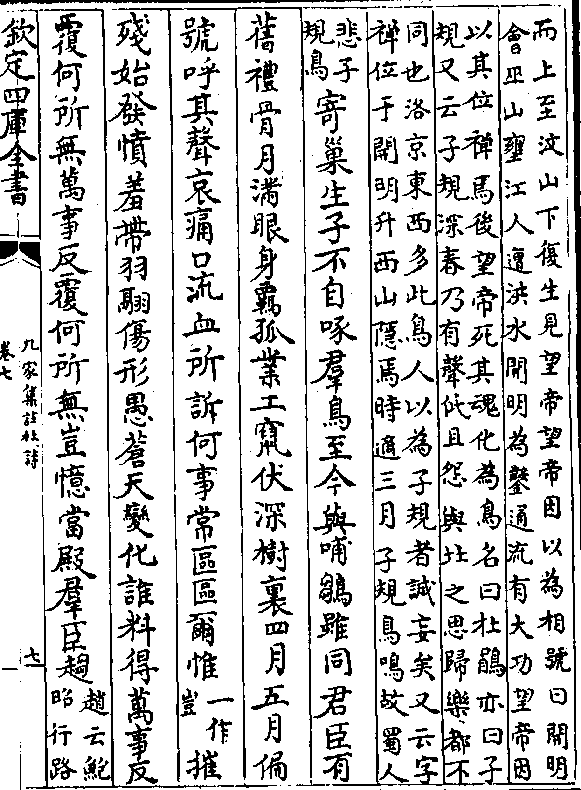 而上至汶山下復生見望帝望帝因以為相號曰開明
會巫山壅江人遭洪水開明為鑿通流有大功望帝因
以其位禪焉後望帝死其魂化為鳥名曰杜鵑亦曰子
規又云子規深春乃有聲低且怨與牡之思歸樂都不
同也洛京東西多此鳥人以為子規者誠妄矣又云字
禪位于開明升西山隱焉時適三月子規鳥鳴故蜀人
悲子
規鳥
寄巢生子不自啄羣鳥至今與哺鶵雖同君臣有
舊禮骨月滿眼身羈孤業工竄伏深樹裏四月五月偏
號呼其聲哀痛口流血所訴何事常區區爾惟
一作
豈
摧
殘始發憤羞帶羽翮傷形愚蒼天變化誰料得萬事反
覆何所無萬事反覆何所無豈憶當殿羣臣趨
趙云鮑
昭行路
欽定四庫全書
九家集註杜詩
卷七
七